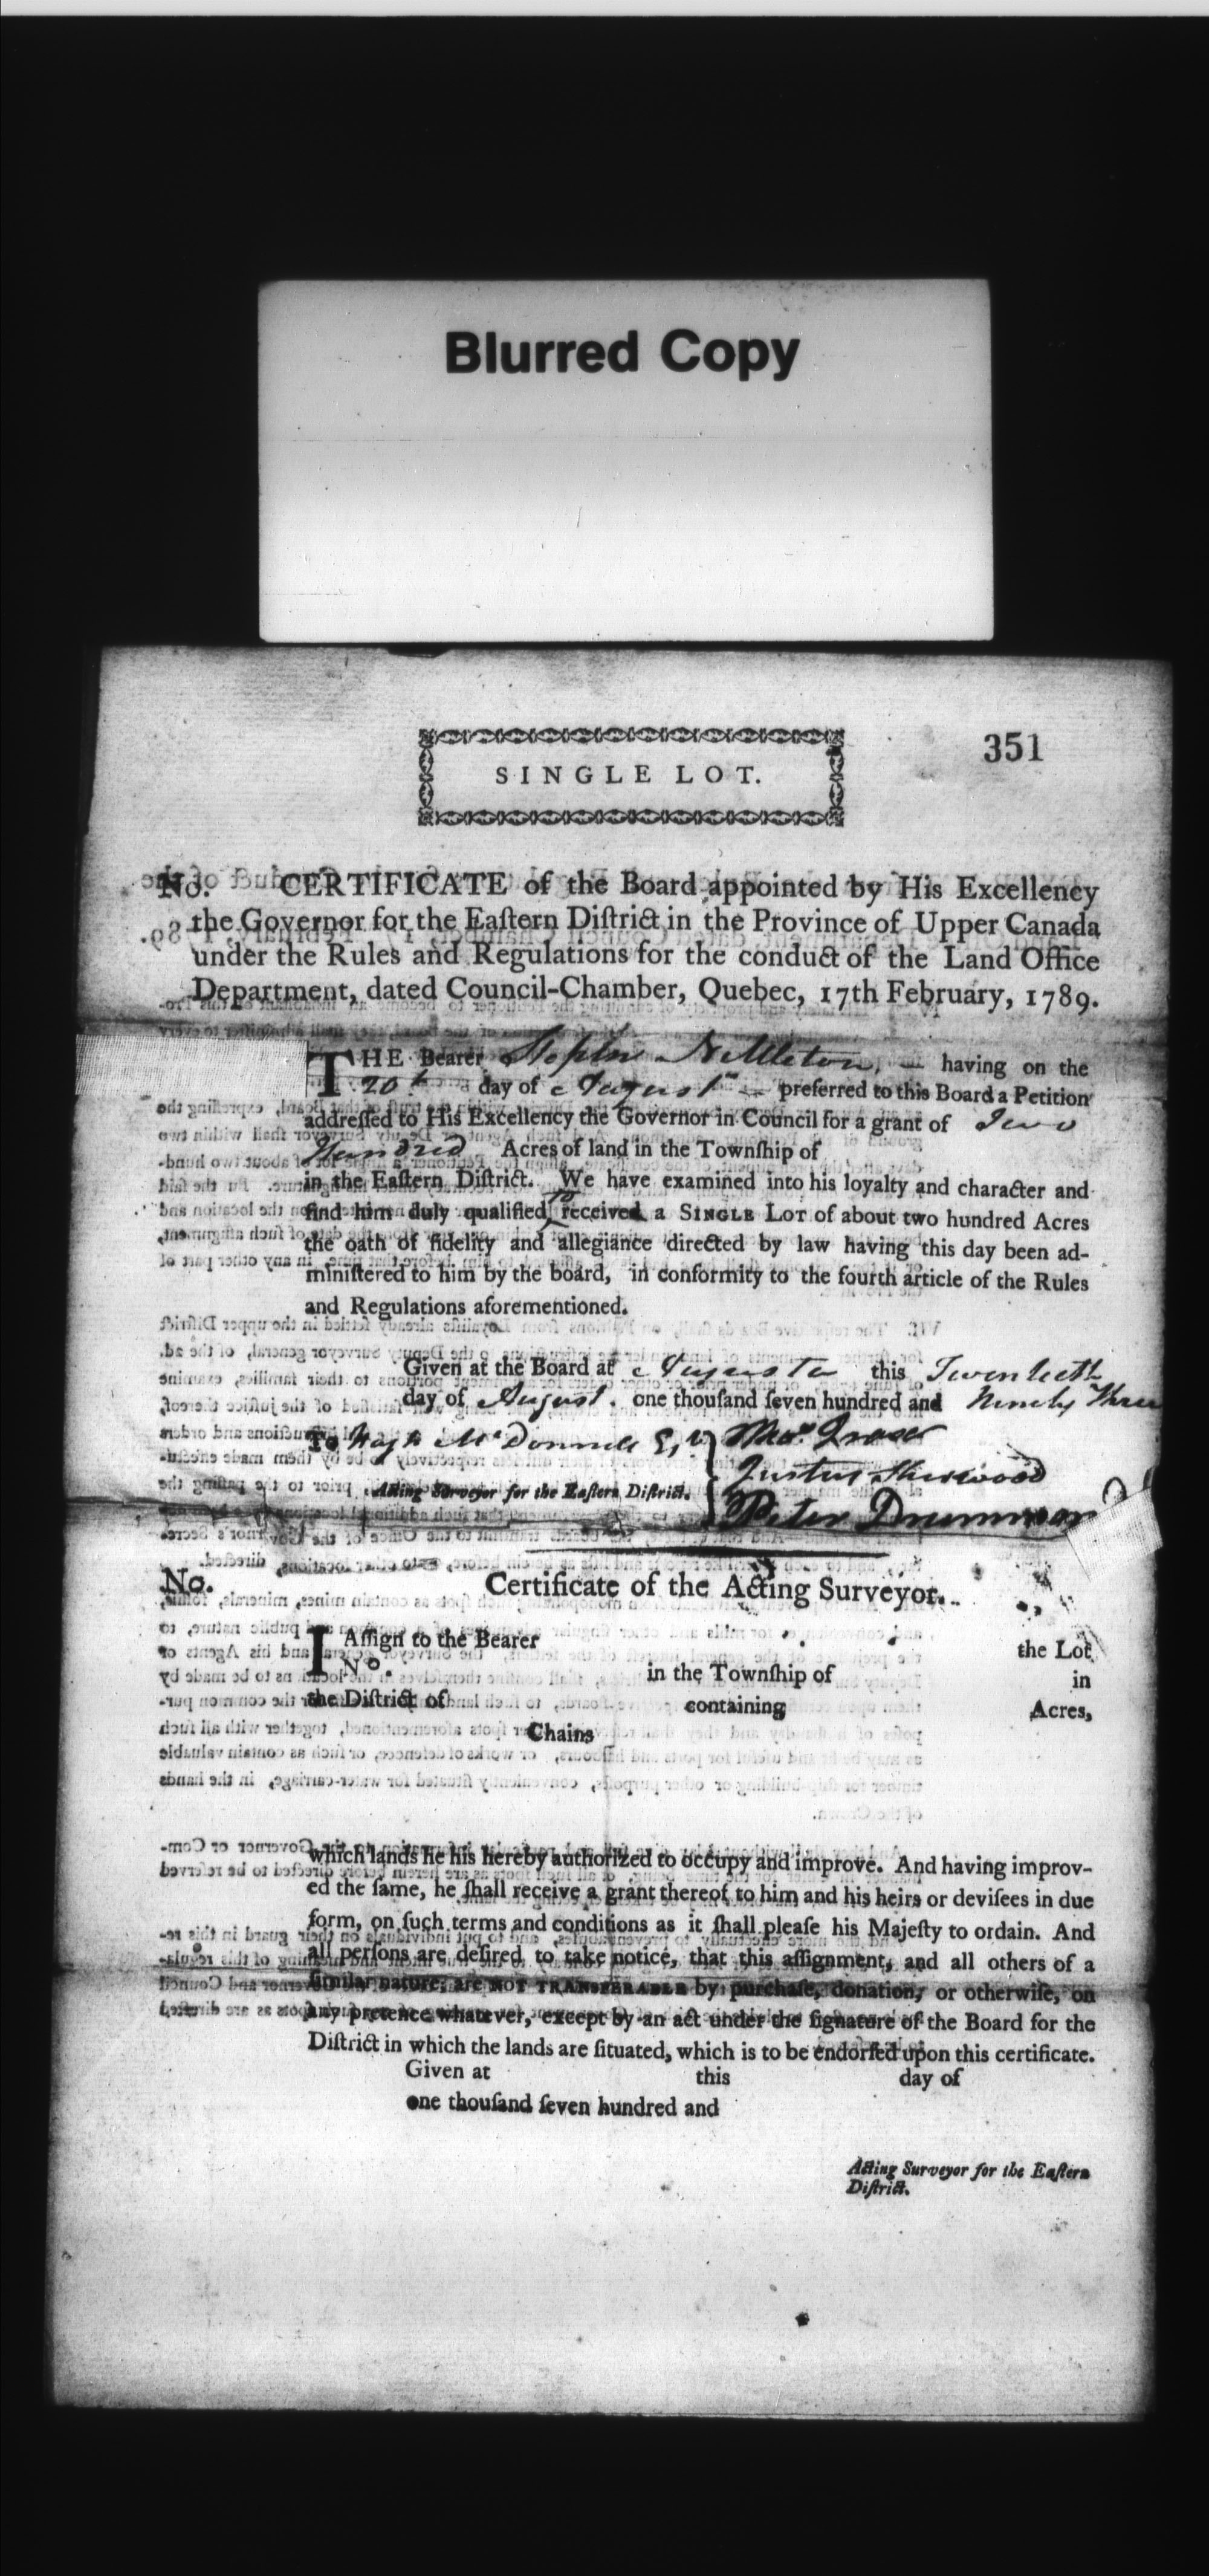 Blurred Copy
351
SINGLE LOT.
No. CERTIFICATE of the Board appointed by His Excellency
the Governor for the Eaſtern Diſtrict in the Province of Upper Canada
under the Rules and Regulations for the conduct of the Land Office
Department, dated Council-Chamber, Quebec, 17th February, 1789.
THE Bearer Stephen Nettleton, having on the
20th day of August preferred to this Board a Petition
addreſſed to His Excellency the Governor in Council for a grant of Two
Hundred Acres of land in the Townſhip of
in the Eaſtern Diſtrict. We have examined into his loyalty and character and
find him duly qualified, to received a SINGLE LOT of about two hundred Acres
the oath of fidelity and allegiance directed by law having this day been ad-
miniſtered to him by the board, in conformity to the fourth article of the Rules
and Regulations aforementioned.
Given at the Board at Augusta this Twentieth
day of August. one thouſand ſeven hundred and Ninety Three
To Hugh McDonnell Esqr Thos. Fraser
Justus Sherwood
Acting Surveyor for the Eaſtern Diſtrict.
Peter Drummond
No. Certificate of the Acting Surveyor.
I Aſſign to the Bearer the Lot
No. in the Townſhip of in
the Diſtrict of containing Acres,
Chains
which lands he his hereby authorized to occupy and improve. And having improv-
ed the ſame, he ſhall receive a grant thereof to him and his heirs or deviſees in due
form, on ſuch terms and conditions as it ſhall pleaſe his Majeſty to ordain. And
all perſons are deſired to take notice, that this aſſignment, and all others of a
ſimilar nature, are NOT TRANSFERABLE by purchaſe, donation, or otherwiſe, on
any pretence whatever, except by an act under the ſignature of the Board for the
Diſtrict in which the lands are ſituated, which is to be endorſed upon this certificate.
Given at this day of
one thouſand ſeven hundred and
Acting Surveyor for the Eaſtern
Diſtrict.